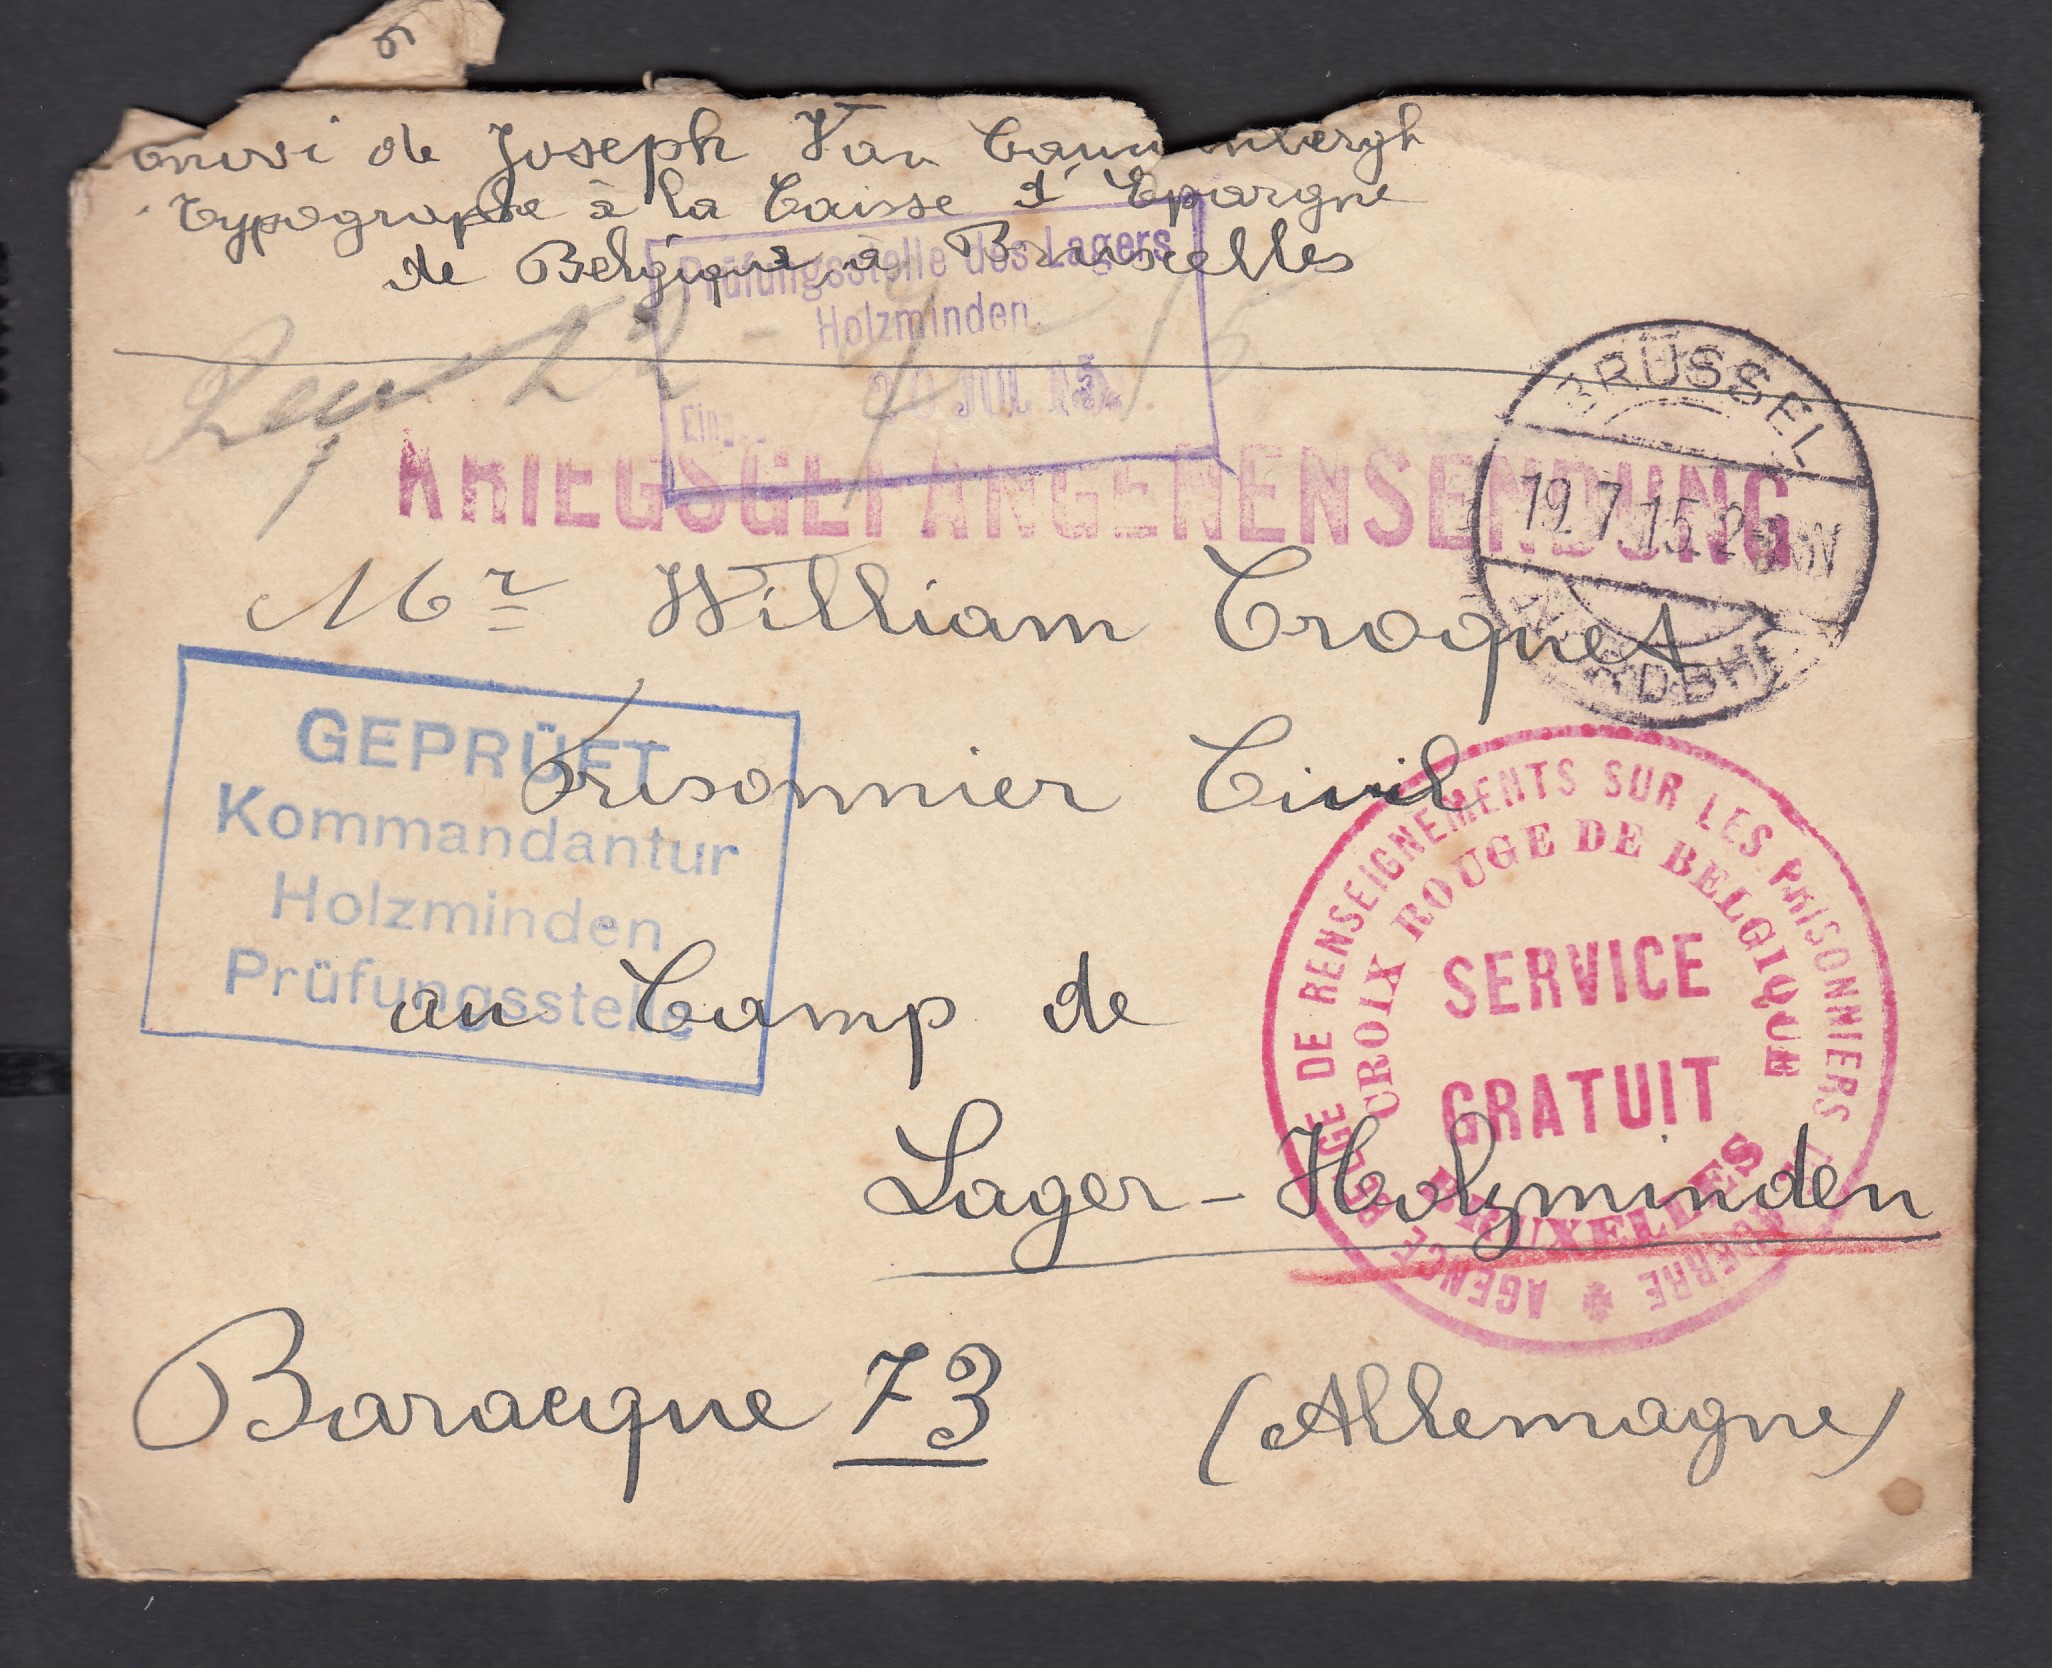 6
Envoi de Joseph Van
Typographe à la Caisse d'Epargne
de Belgique à Bruxelles
Prüfungsstelle des Lagers
Holzminden
20 JUL 15
Eing.
22 - 7 - 15
KRIEGSGEFANGENENSENDUNG
BRÜSSEL
19.7.15.2-3N
Mr William Croquet
Prisonnier Civil
au Camp de
Lager-Holzminden
Baracque 73 (Allemagne)
GEPRÜFT
Kommandantur
Holzminden
Prüfungsstelle
AGENCE BELGE DE RENSEIGNEMENTS SUR LES PRISONNIERS DE GUERRE
CROIX ROUGE DE BELGIQUE
SERVICE
GRATUIT
BRUXELLES